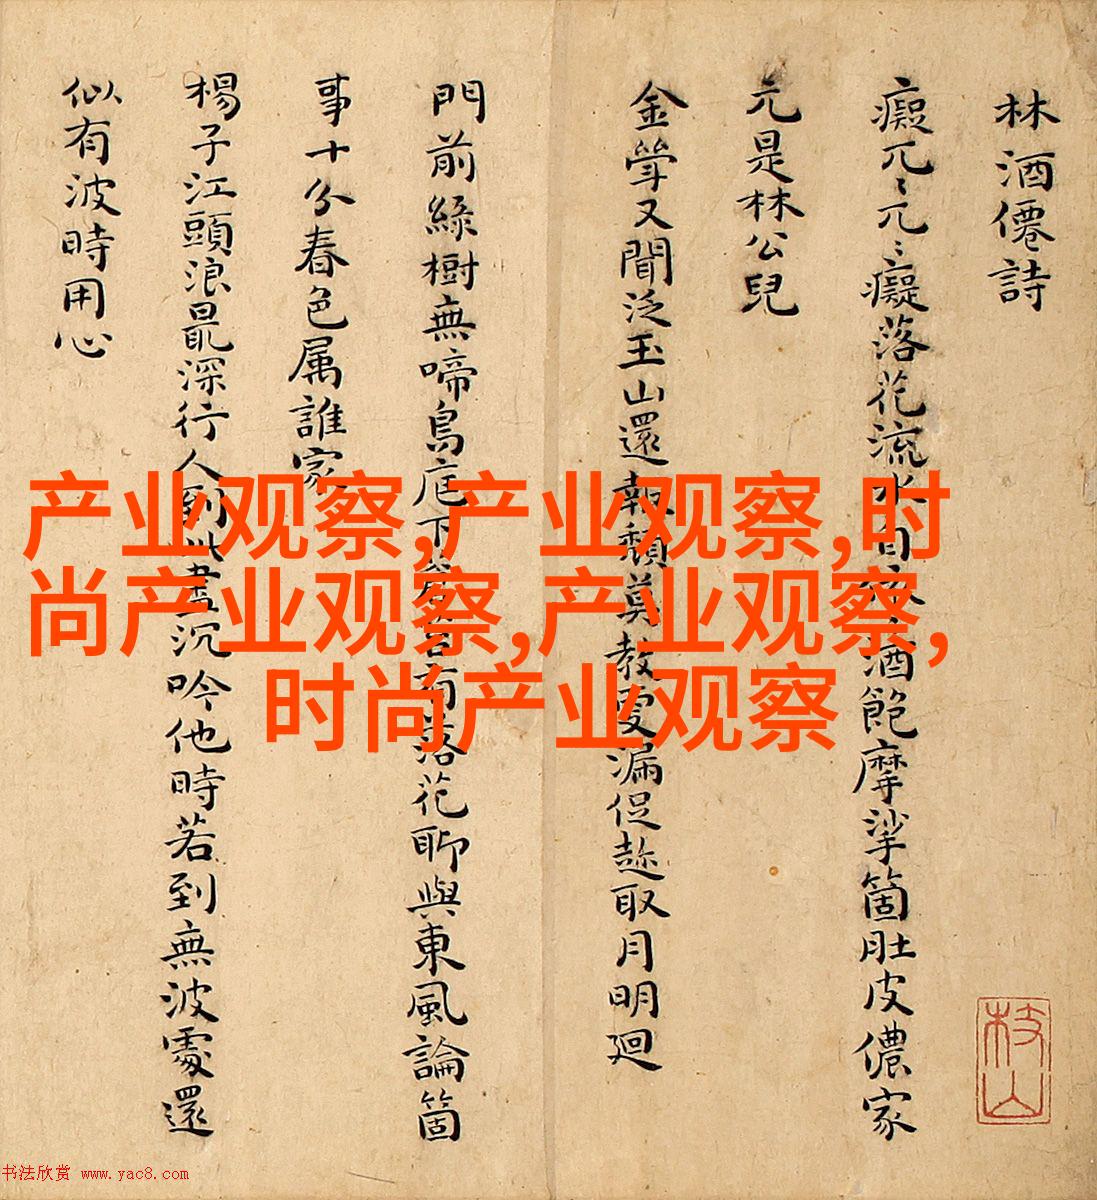 林酒僊詩
癡兀〻兀〻癡落花流水自
酒飽摩挲箇肚皮儂家
元是林公兒
金斝又聞泛玉山還報頹莫教更漏促趂取月明廻
門前綠樹無啼鳥庭下
落花聊與東風論箇
事十分春色属誰家
楊子江頭浪最深行人到此盡沉吟他時若到無波處還
似有波時用心
枝山
产业观察,产业观察,时
尚产业观察,产业观察,
时尚产业观察
书法欣赏 www.yac8.com